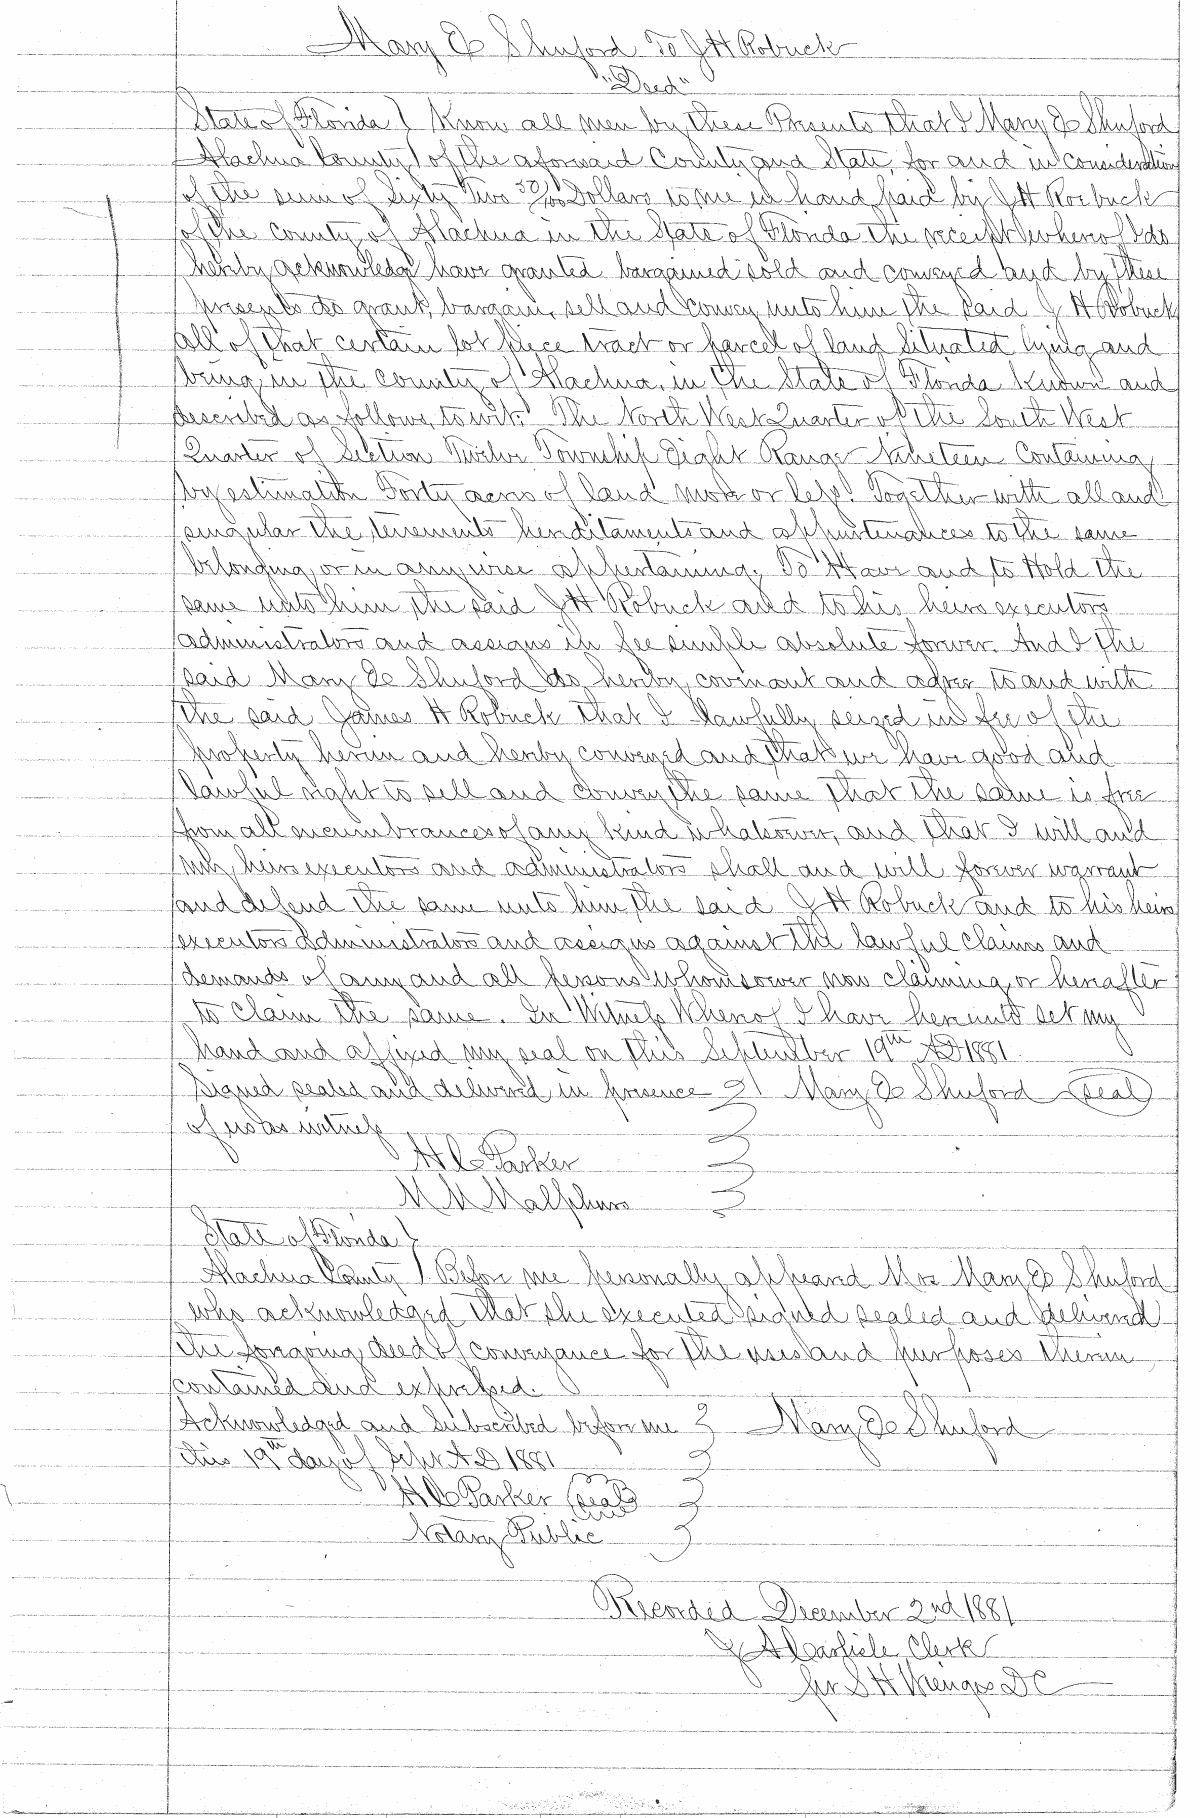 Mary E Shuford To J H Robuck
"Deed"
State of Florida } Know all men by these Presents that I Mary E Shuford
Alachua County } of the aforesaid County and State, for and in consideration
of the sum of Sixty Two 50/100 Dollars to me in hand paid by J H Roebuck
of the county of Alachua in the State of Florida the receipt whereof I do
hereby acknowledge have granted bargained sold and conveyed and by these
presents do grant, bargain, sell and convey unto him the said J H Robuck
all of that certain lot piece tract or parcel of land Situated lying and
being in the county of Alachua, in the State of Florida Known and
described as follows, to wit: The North West Quarter of the South West
Quarter of Section Twelve Township Eight Range Nineteen Containing
by estimation Forty acres of land more or less. Together with all and
singular the tenements hereditaments and appurtenances to the same
belonging or in any wise appertaining. To Have and to Hold the
same unto him the said J H Robuck and to his heirs executors
administrators and assigns in fee simple absolute forever. And I the
said Mary E Shuford do hereby covenant and agree to and with
the said James H Robuck that I lawfully seized in fee of the
property herein and hereby conveyed and that we have good and
lawful right to sell and convey the same that the same is free
from all encumbrances of any kind whatsoever, and that I will and
my heirs executors and administrators shall and will forever warrant
and defend the same unto him the said J H Robuck and to his heirs
executors administrators and assigns against the lawful claims and
demands of any and all persons whomsoever now claiming or hereafter
to claim the same. In Witness Whereof I have hereunto set my
hand and affixed my seal on this September 19th AD 1881
Signed sealed and delivered in presence } Mary E Shuford (seal)
of us as witness
H C Parker
M M Malphurs
State of Florida }
Alachua County } Before me personally appeared Mrs Mary E Shuford
who acknowledged that she executed signed sealed and delivered
the foregoing deed of conveyance for the uses and purposes therein
contained and expressed.
Acknowledged and Subscribed before me } Mary E Shuford
this 19th day of Sept AD 1881
H C Parker (seal)
Notary Public
Recorded December 2nd 1881
J A Carlisle, Clerk
per S H Wienges DC